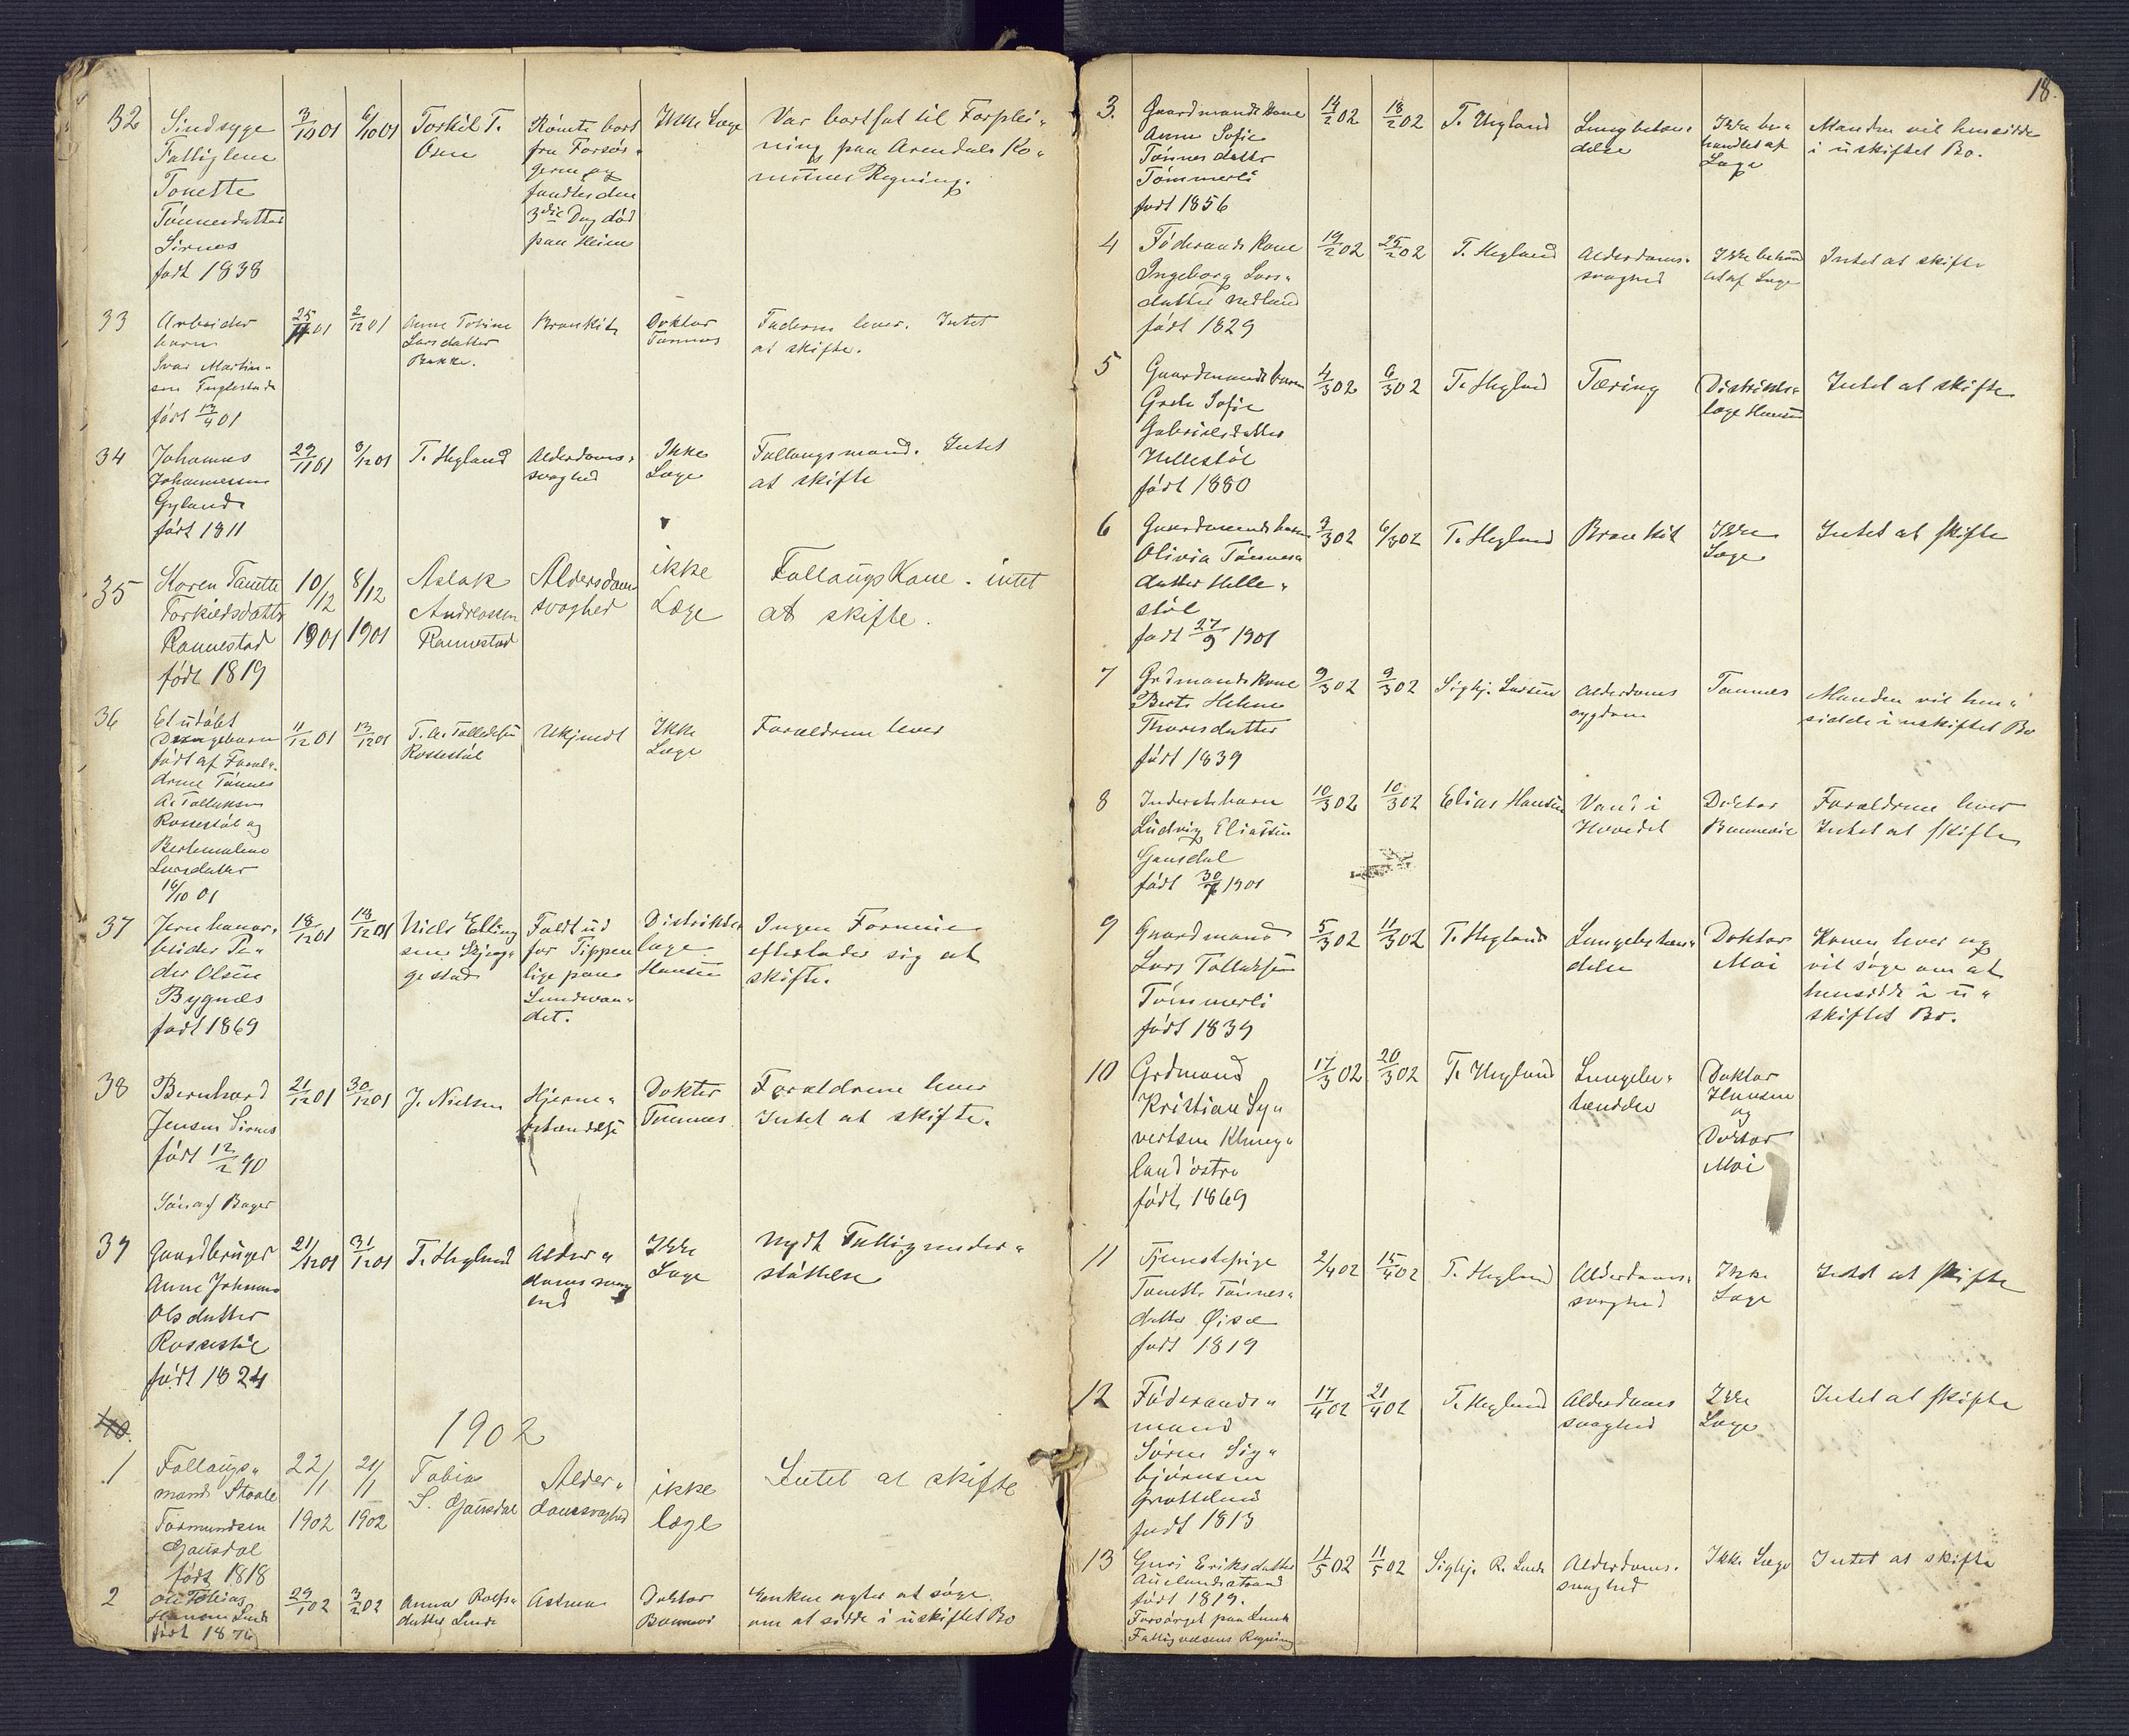 18.
32
Sindsyge
Fattiglem
Tonette
Tönnesdatter
Sirnes
födt 1838
3/10 01
6/10 01
Torkil T.
Osen
Römte bort
fra Forsör-
gerne og
fandtes den
3die Dag död
paa Heien
Ikke Læge
Var bortsat til Forplei-
ning paa Arendals Ko-
munes Regning.
33
Arbeider
barn
Ivar Martin-
sen Fuglestad
födt 13/4 01
25/11 01
2/12 01
Anne Tobine
Larsdatter
Bakke.
Bronkit
Doktor
Tannæs
Faderen lever. Intet
at skifte.
34
Johannes
Johannessen
Gyland
födt 1811
29/11 01
3/12 01
T. Hegland
Alderdoms-
svaghed
Ikke
Læge
Follaugsmand. Intet
at skifte
35
Karen Tonette
Torkieldsdatter
Rannestad
födt 1819
10/12
1901
8/12
1901
Aslak
Andreassen
Rannestad
Aldersdom
svaghed
ikke
Læge
Follaugs Kone. intet
at skifte.
36
Et udöbt
Drengebarn
födt af Foræl-
drene Tönnes
A. Tolleksen
Rossestöl og
Bertemaline
Larsdatter
16/10 01
11/12 01
13/12 01
T. A. Tolleksen
Rossestöl
Ukjendt
Ikke
Læge
Forældrene lever
37
Jernbanear-
beider Pe-
der Olsen
Bygnes
födt 1869
18/12 01
18/12 01
Niels Elling
sen Skjeg-
gestad
Faldt ud
for Tippen
lige paa
Lundevan-
det.
Distrikts
læge
Hansen
Ingen Formue
efterlader sig at
skifte.
38
Bernhard
Jensen Sirnes
födt 12/2 90
Sön af Bager
21/12 01
30/12 01
J. Nielsen
Hjerne-
betændelse
Doktor
Tannæs
Forældrene lever
Intet at skifte.
39
Gaardbruger
Anne Johanne
Olsdatter
Rossestöl
födt 1824
21/12 01
31/12 01
T. Hegland
Alder-
domssvag
hed
Ikke
Læge
Nydt Fattigunder-
støttelse
40.
1902
1
Follaugs-
mand Staale
Tormundsen
Gausdal
födt 1818
22/1
1902
21/1
1902
Tobias
S. Gausdal
Alder-
domssvaghed
ikke
læge
Intet at skifte
2
Ole Tobias
Hansen Lunde
födt 1876
29/1 02
3/2 02
Anna Rolfs-
datter Lunde
Astma
Doktor
Bonnevi
Enken agter at söge
om at sidde i uskiftet Bo
3.
Gaardmandskone
Anne Sofie
Tönnesdatter
Tömmerli
födt 1856
14/2 02
18/2 02
T. Hegland
Lungebetæn-
delse
Ikke be-
handlet af
Læge
Manden vil hensidde
i uskiftet Bo.
4
Föderaads Kone
Ingeborg Lars-
datter Nedland
födt 1829
19/2 02
25/2 02
T. Hegland
Alderdoms-
svaghed
Ikke behand
let af Læge
Intet at skifte
5
Gaardmandsbarn
Grete Sofie
Gabrielsdatter
Hellestöl
födt 1880
4/3 02
6/3 02
T. Hegland
Tæring
Distrikts-
læge Hansen
Intet at skifte
6
Gaardmandsbarn
Olivia Tönnes-
datter Helle-
stöl
födt 27/9 1901
3/3 02
6/3 02
T. Hegland
Bronkit
Ikke
Læge
Intet at skifte
7
Grdmands Kone
Berte Helene
Thoresdatter
födt 1839
9/3 02
9/3 02
Sigbj. Larsen
Alderdoms
sygdom
Tannæs
Manden vil hen-
sidde i uskiftet Bo
8
Inderstbarn
Ludvig Eliassen
Gausdal
födt 30/7 1901
10/3 02
10/3 02
Elias Hansen
Vand i
Hovedet
Doktor
Bonnevie
Forældrene lever
Intet at skifte
9
Gaardmand
Lars Tolleksen
Tömmerli
födt 1839
5/3 02
11/3 02
T. Hegland
Lungebetæn-
delse
Doktor
Moi
Konen lever og
vil söge om at
hensidde i u-
skiftet Bo.
10
Grdmand
Kristian Sy-
vertsen Klung-
land östre
födt 1869
17/3 02
20/3 02
T. Hegland
Lungebe-
tændelse
Doktor
Hansen
og
Doktor
Moi
11
Tjenestepige
Tonette Tönnes-
datter Øisæ
födt 1819
2/4 02
15/4 02
T. Hegland
Alderdoms-
svaghed
Ikke
Læge
Intet at skifte
12
Föderaads-
mand
Sören Sig-
björnsen
födt 1813
17/4 02
21/4 02
T. Hegland
Alderdoms
svaghed
Ikke
Læge
Intet at skifte
13
Guri Eriksdatter
Auelandsstrand
födt 1819.
Forsörget paa Lunds
Fattigvæsens Regning
11/5 02
11/5 02
Sigbj. R. Lunde
Alderdoms-
svaghed
Ikke Læge
Intet at skifte